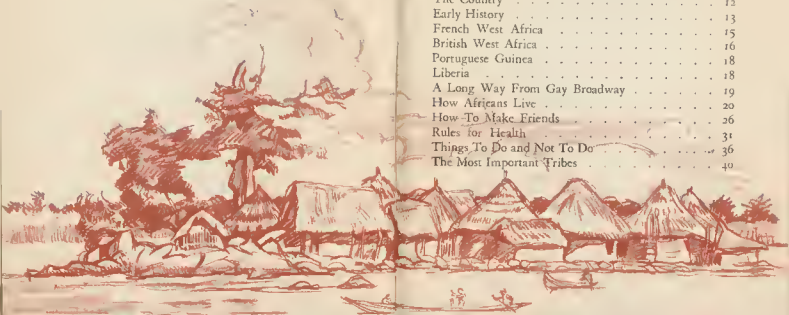 The Country . . . . . . . . . . . . . . . 12
Early History . . . . . . . . . . . . . . . 13
French West Africa . . . . . . . . . . . . 15
British West Africa . . . . . . . . . . . . 16
Portuguese Guinea . . . . . . . . . . . . 18
Liberia . . . . . . . . . . . . . . . . . . 18
A Long Way From Gay Broadway . . . . . . . 19
How Africans Live . . . . . . . . . . . . 20
How To Make Friends . . . . . . . . . . . 26
Rules for Health . . . . . . . . . . . . . 31
Things To Do and Not To Do . . . . . . . . 36
The Most Important Tribes . . . . . . . . . 40